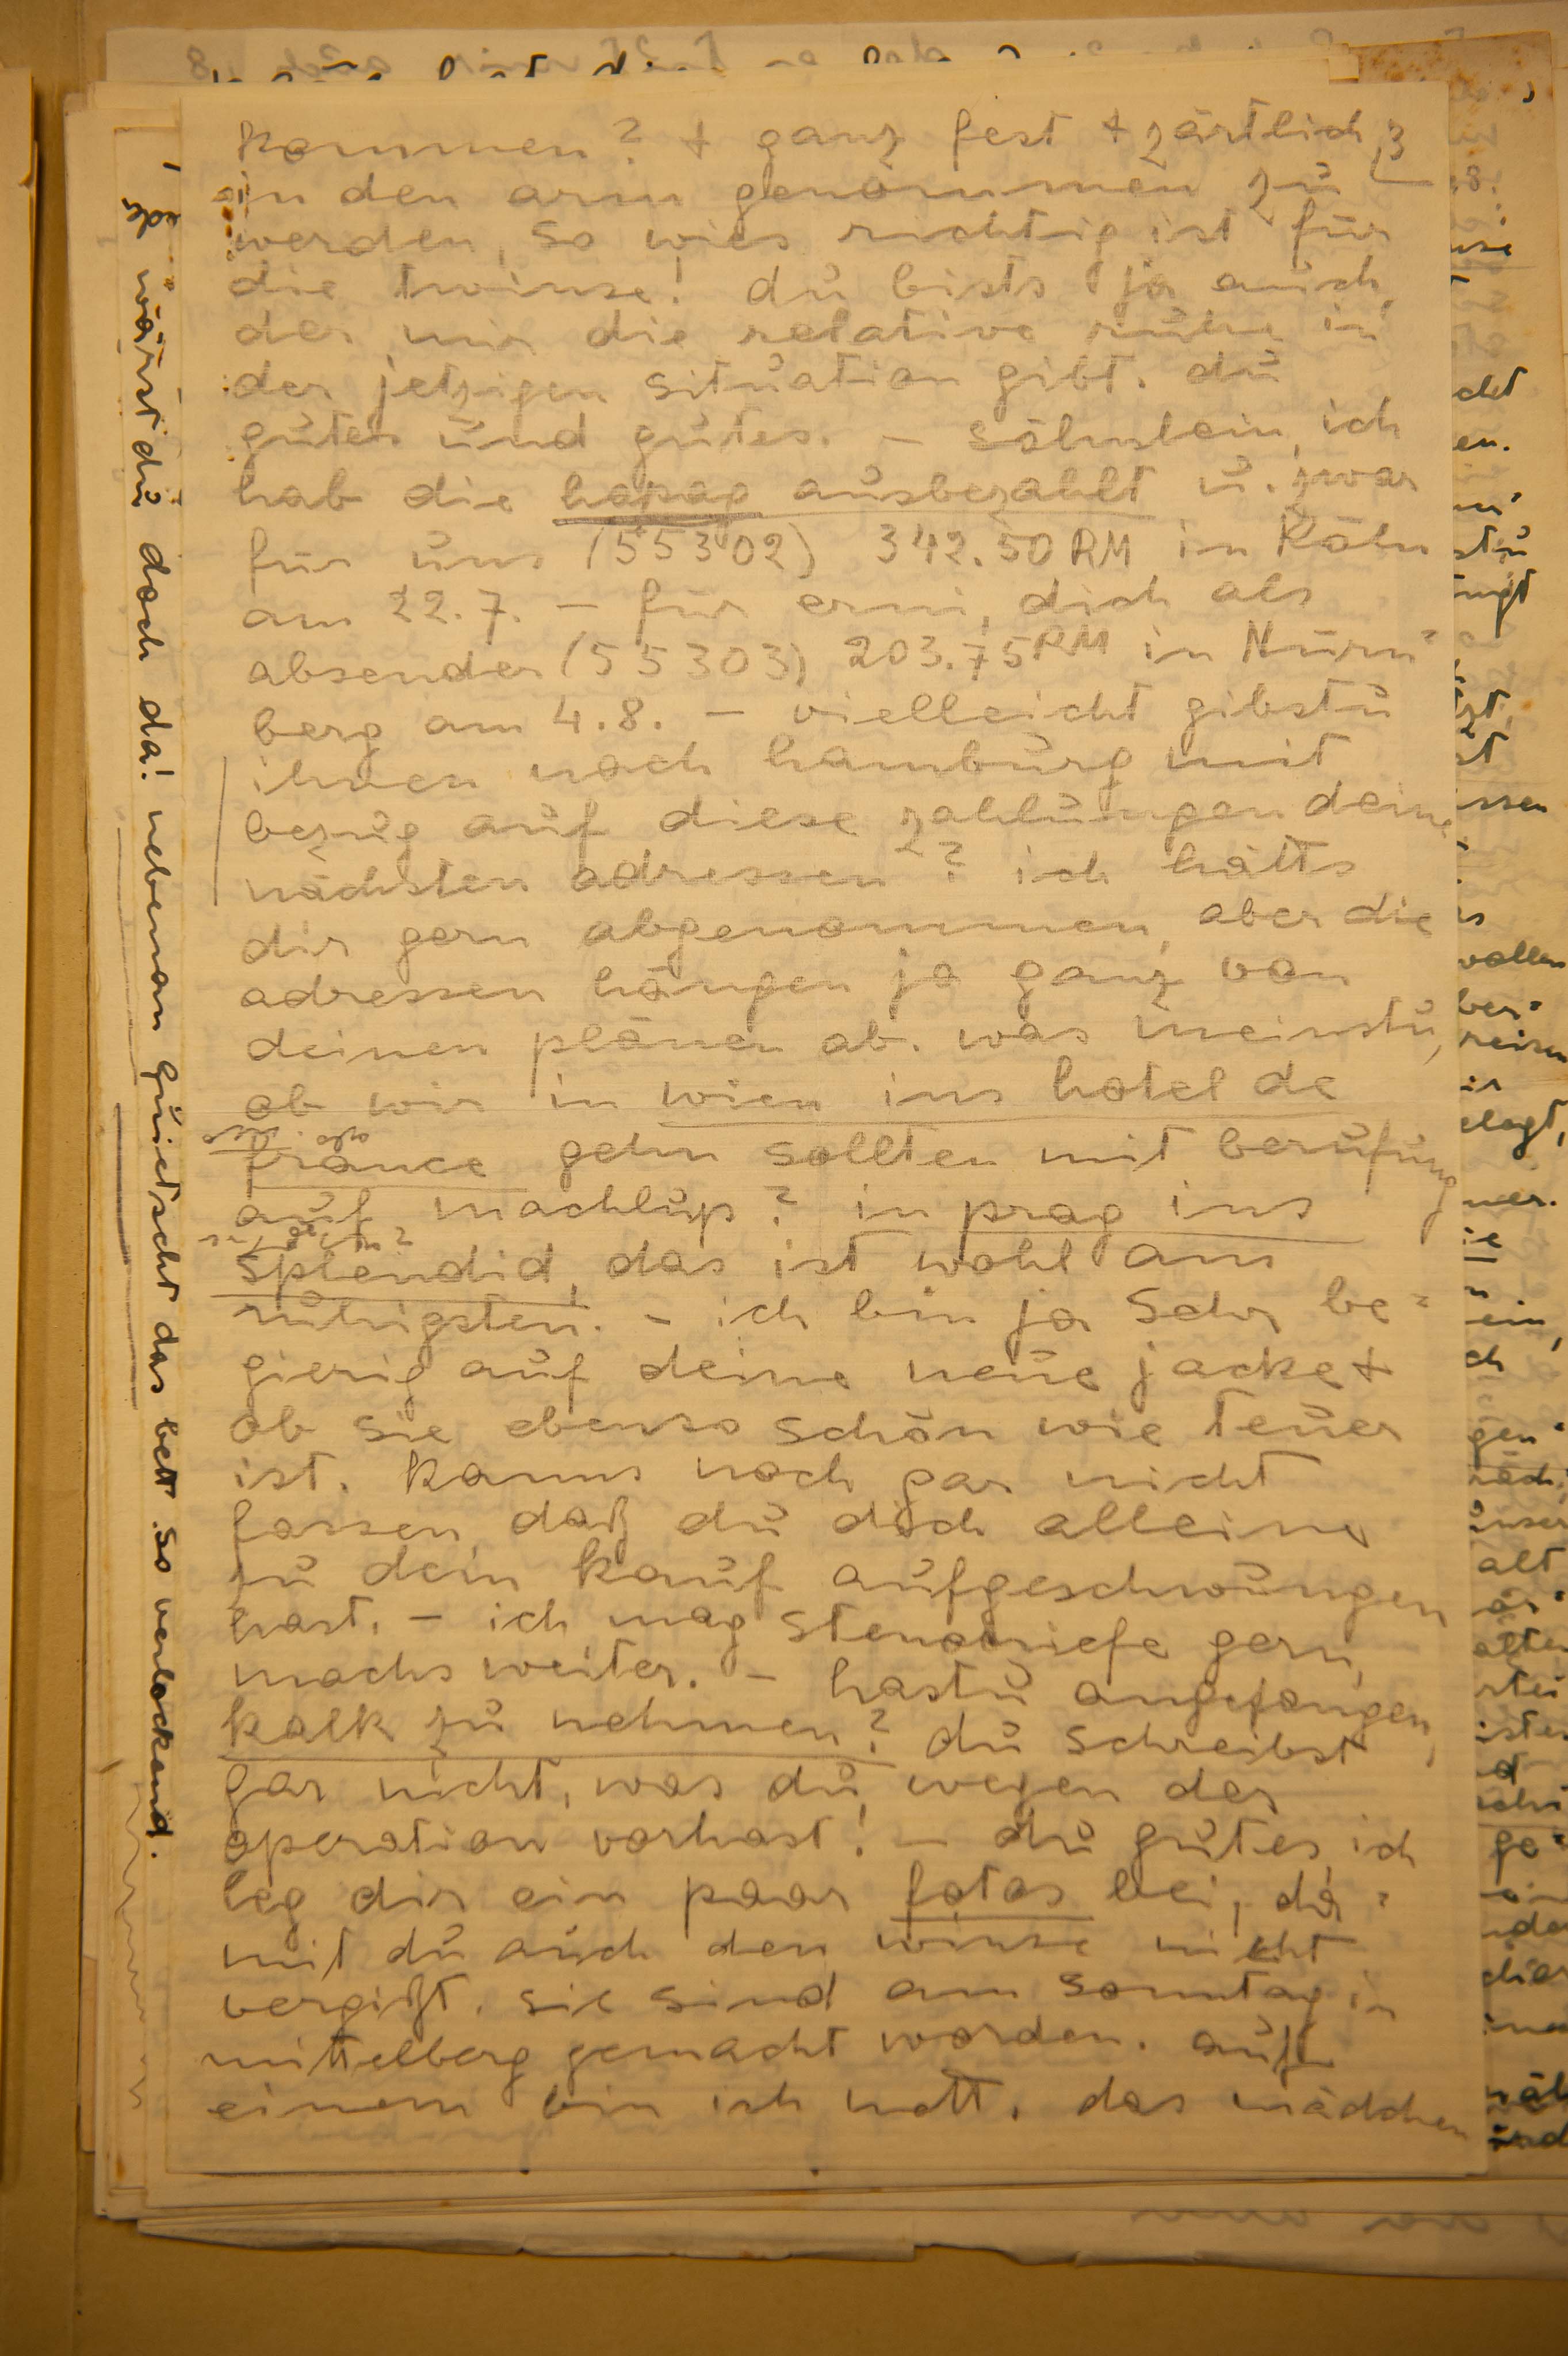 kommen? + ganz fest + zärtlich 3
in den arm genommen zu
werden, so wies richtig ist für
die twinse! du bists ja auch,
der mir die relative ruhe in
der jetzigen situation gibt. du
guter und gutes. – söhnlein, ich
hab die hapag ausbezahlt u. zwar
für uns (55302) 342.50 RM in Köln
am 22.7. – für erni, dich als
absender (55303) 203.75 RM in Nürn=
berg am 4.8. – vielleicht gibstu
ihnen nach hamburg mit
bezug auf diese zahlungen deine
nächsten adressen? ich hätts
dir gern abgenommen, aber die
adressen hängen ja ganz von
deinen plänen ab. was meinstu,
ob wir in wien ins hotel de
france gehn sollten mit berufung
auf machlup? in prag ins
splendid, das ist wohl am
ruhigsten. – ich bin ja sehr be=
gierig auf deine neue jacke +
ob sie ebenso schön wie teuer
ist. kanns noch gar nicht
fassen, daß du dich alleine
zu dem kauf aufgeschwungen
hast. – ich mag stenobriefe gern,
machs weiter. – hastu angefangen,
kalk zu nehmen? du schreibst
gar nicht, was du wegen der
operation vorhast! – du gutes, ich
leg dir ein paar fotos bei, da=
mit du auch den winse nicht
vergißt. sie sind am sonntag in
mittelberg gemacht worden. auf
einem bin ich nett. das mädchen
wärst du doch da! nebenan quietscht das bett so verlockend.